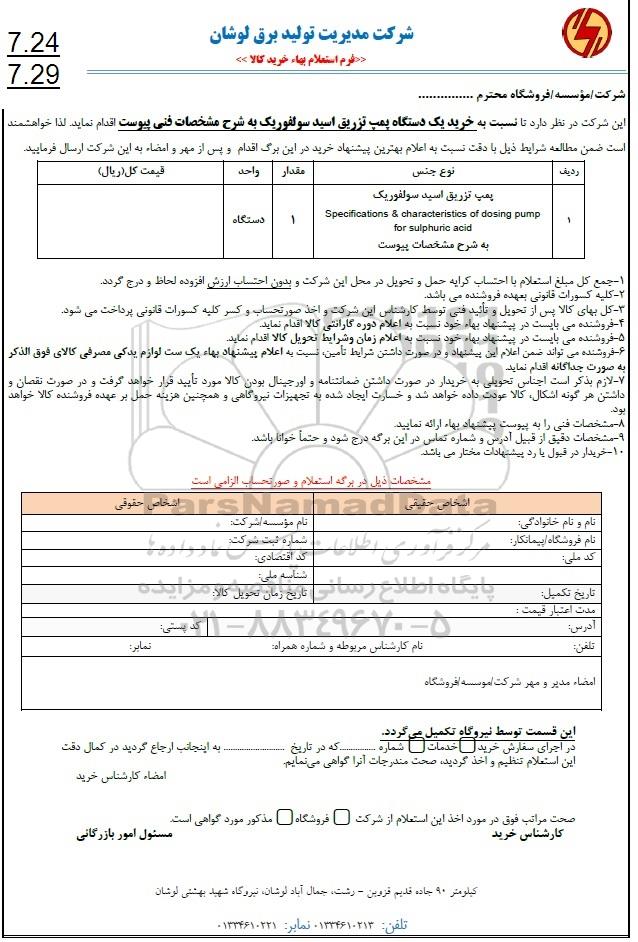 7.24
7.29
شرکت مدیریت تولید برق لوشان
<<فرم استعلام بهاء خرید کالا >>
شرکت/مؤسسه/فروشگاه محترم ...............
این شرکت در نظر دارد تا نسبت به خرید یک دستگاه پمپ تزریق اسید سولفوریک به شرح مشخصات فنی پیوست اقدام نماید. لذا خواهشمند
است ضمن مطالعه شرایط ذیل با دقت نسبت به اعلام بهترین پیشنهاد خرید در این برگ اقدام و پس از مهر و امضاء به این شرکت ارسال فرمایید.
ردیف نوع جنس مقدار واحد قیمت کل(ریال)
پمپ تزریق اسید سولفوریک
Specifications & characteristics of dosing pump
۱ ۱ دستگاه
for sulphuric acid
به شرح مشخصات پیوست
۱-جمع کل مبلغ استعلام با احتساب کرایه حمل و تحویل در محل این شرکت و بدون احتساب ارزش افزوده لحاظ و درج گردد.
۲-کلیه کسورات قانونی بعهده فروشنده می باشد.
۳-کل بهای کالا پس از تحویل و تأئید فنی توسط کارشناس این شرکت و اخذ صورتحساب و کسر کلیه کسورات قانونی پرداخت می شود.
۴-فروشنده می بایست در پیشنهاد بهاء خود نسبت به اعلام دوره گارانتی کالا اقدام نماید.
۵-فروشنده می بایست در پیشنهاد بهاء خود نسبت به اعلام زمان وشرایط تحویل کالا اقدام نماید.
۶-فروشنده می تواند ضمن اعلام این پیشنهاد و در صورت داشتن شرایط تأمین، نسبت به اعلام پیشنهاد بهاء یک ست لوازم یدکی مصرفی کالای فوق الذکر
به صورت جداگانه اقدام نماید.
۷-لازم بذکر است اجناس تحویلی به خریدار در صورت داشتن ضمانتنامه و اورجینال بودن کالا مورد تأیید قرار خواهد گرفت و در صورت نقصان و
داشتن هر گونه اشکال، کالا عودت داده خواهد شد و خسارت ایجاد شده به تجهیزات نیروگاهی و همچنین هزینه حمل بر عهده فروشنده کالا خواهد
بود.
۸-مشخصات فنی را به پیوست پیشنهاد بهاء ارائه نمایید.
۹-مشخصات دقیق از قبیل آدرس و شماره تماس در این برگه درج شود و حتماً خوانا باشد.
۱۰-خریدار در قبول یا رد پیشنهادات مختار می باشد.
مشخصات ذیل در برگه استعلام و صورتحساب الزامی است
اشخاص حقیقی اشخاص حقوقی
ParsNamadData
نام و نام خانوادگی: نام مؤسسه/شرکت:
نام فروشگاه/پیمانکار: شماره ثبت شرکت:
کد ملی: کد اقتصادی:
شناسه ملی:
تاریخ تکمیل: تاریخ زمان تحویل کالا:
پایگاه اطلاع رسانی مناقصه و مزایده
مدت اعتبار قیمت :
آدرس: کد پستی:
۰۲۱-۸۸۳۴۹۶۷۰-۵
تلفن: نام کارشناس مربوطه و شماره همراه: نمابر:
امضاء مدیر و مهر شرکت/موسسه/فروشگاه
این قسمت توسط نیروگاه تکمیل می‌گردد.
در اجرای سفارش خرید خدمات شماره ...............که در تاریخ ......................... به اینجانب ارجاع گردید در کمال دقت
این استعلام تنظیم و اخذ گردید، صحت مندرجات آنرا گواهی می‌نمایم.
امضاء کارشناس خرید
صحت مراتب فوق در مورد اخذ این استعلام از شرکت فروشگاه مذکور مورد گواهی است.
کارشناس خرید مسئول امور بازرگانی
کیلومتر ۹۰ جاده قدیم قزوین - رشت، جمال آباد لوشان، نیروگاه شهید بهشتی لوشان
تلفن: ۰۱۳۳۴۶۱۰۲۱۳ نمابر: ۰۱۳۳۴۶۱۰۲۲۱